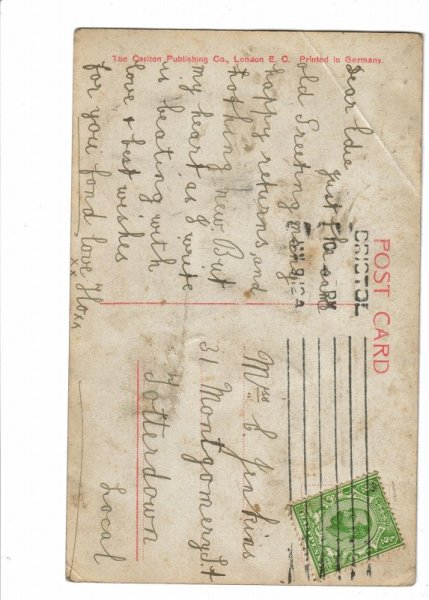 POST CARD
The Carlton Publishing Co., London E. C. Printed in Germany.
BRISTOL
Dear Ede just the same
old Greeting many
happy returns, and
nothing new. But
my heart as I write
is beating with
love & best wishes
for you fond love Flo xx
xx
Mrs E Jenkins
31 Montgomery St
Totterdown
Local
HALFPENNY